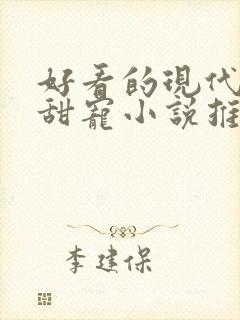 好看的現代
甜寵小説推
李建保